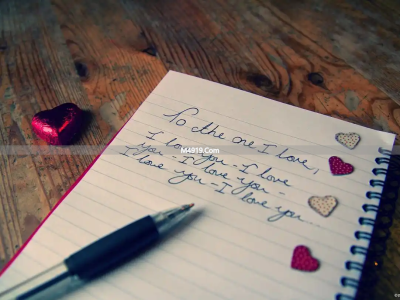 To the one I love,
I love you - I love
you - I love you -
I love you - I love you...
M4919.Com